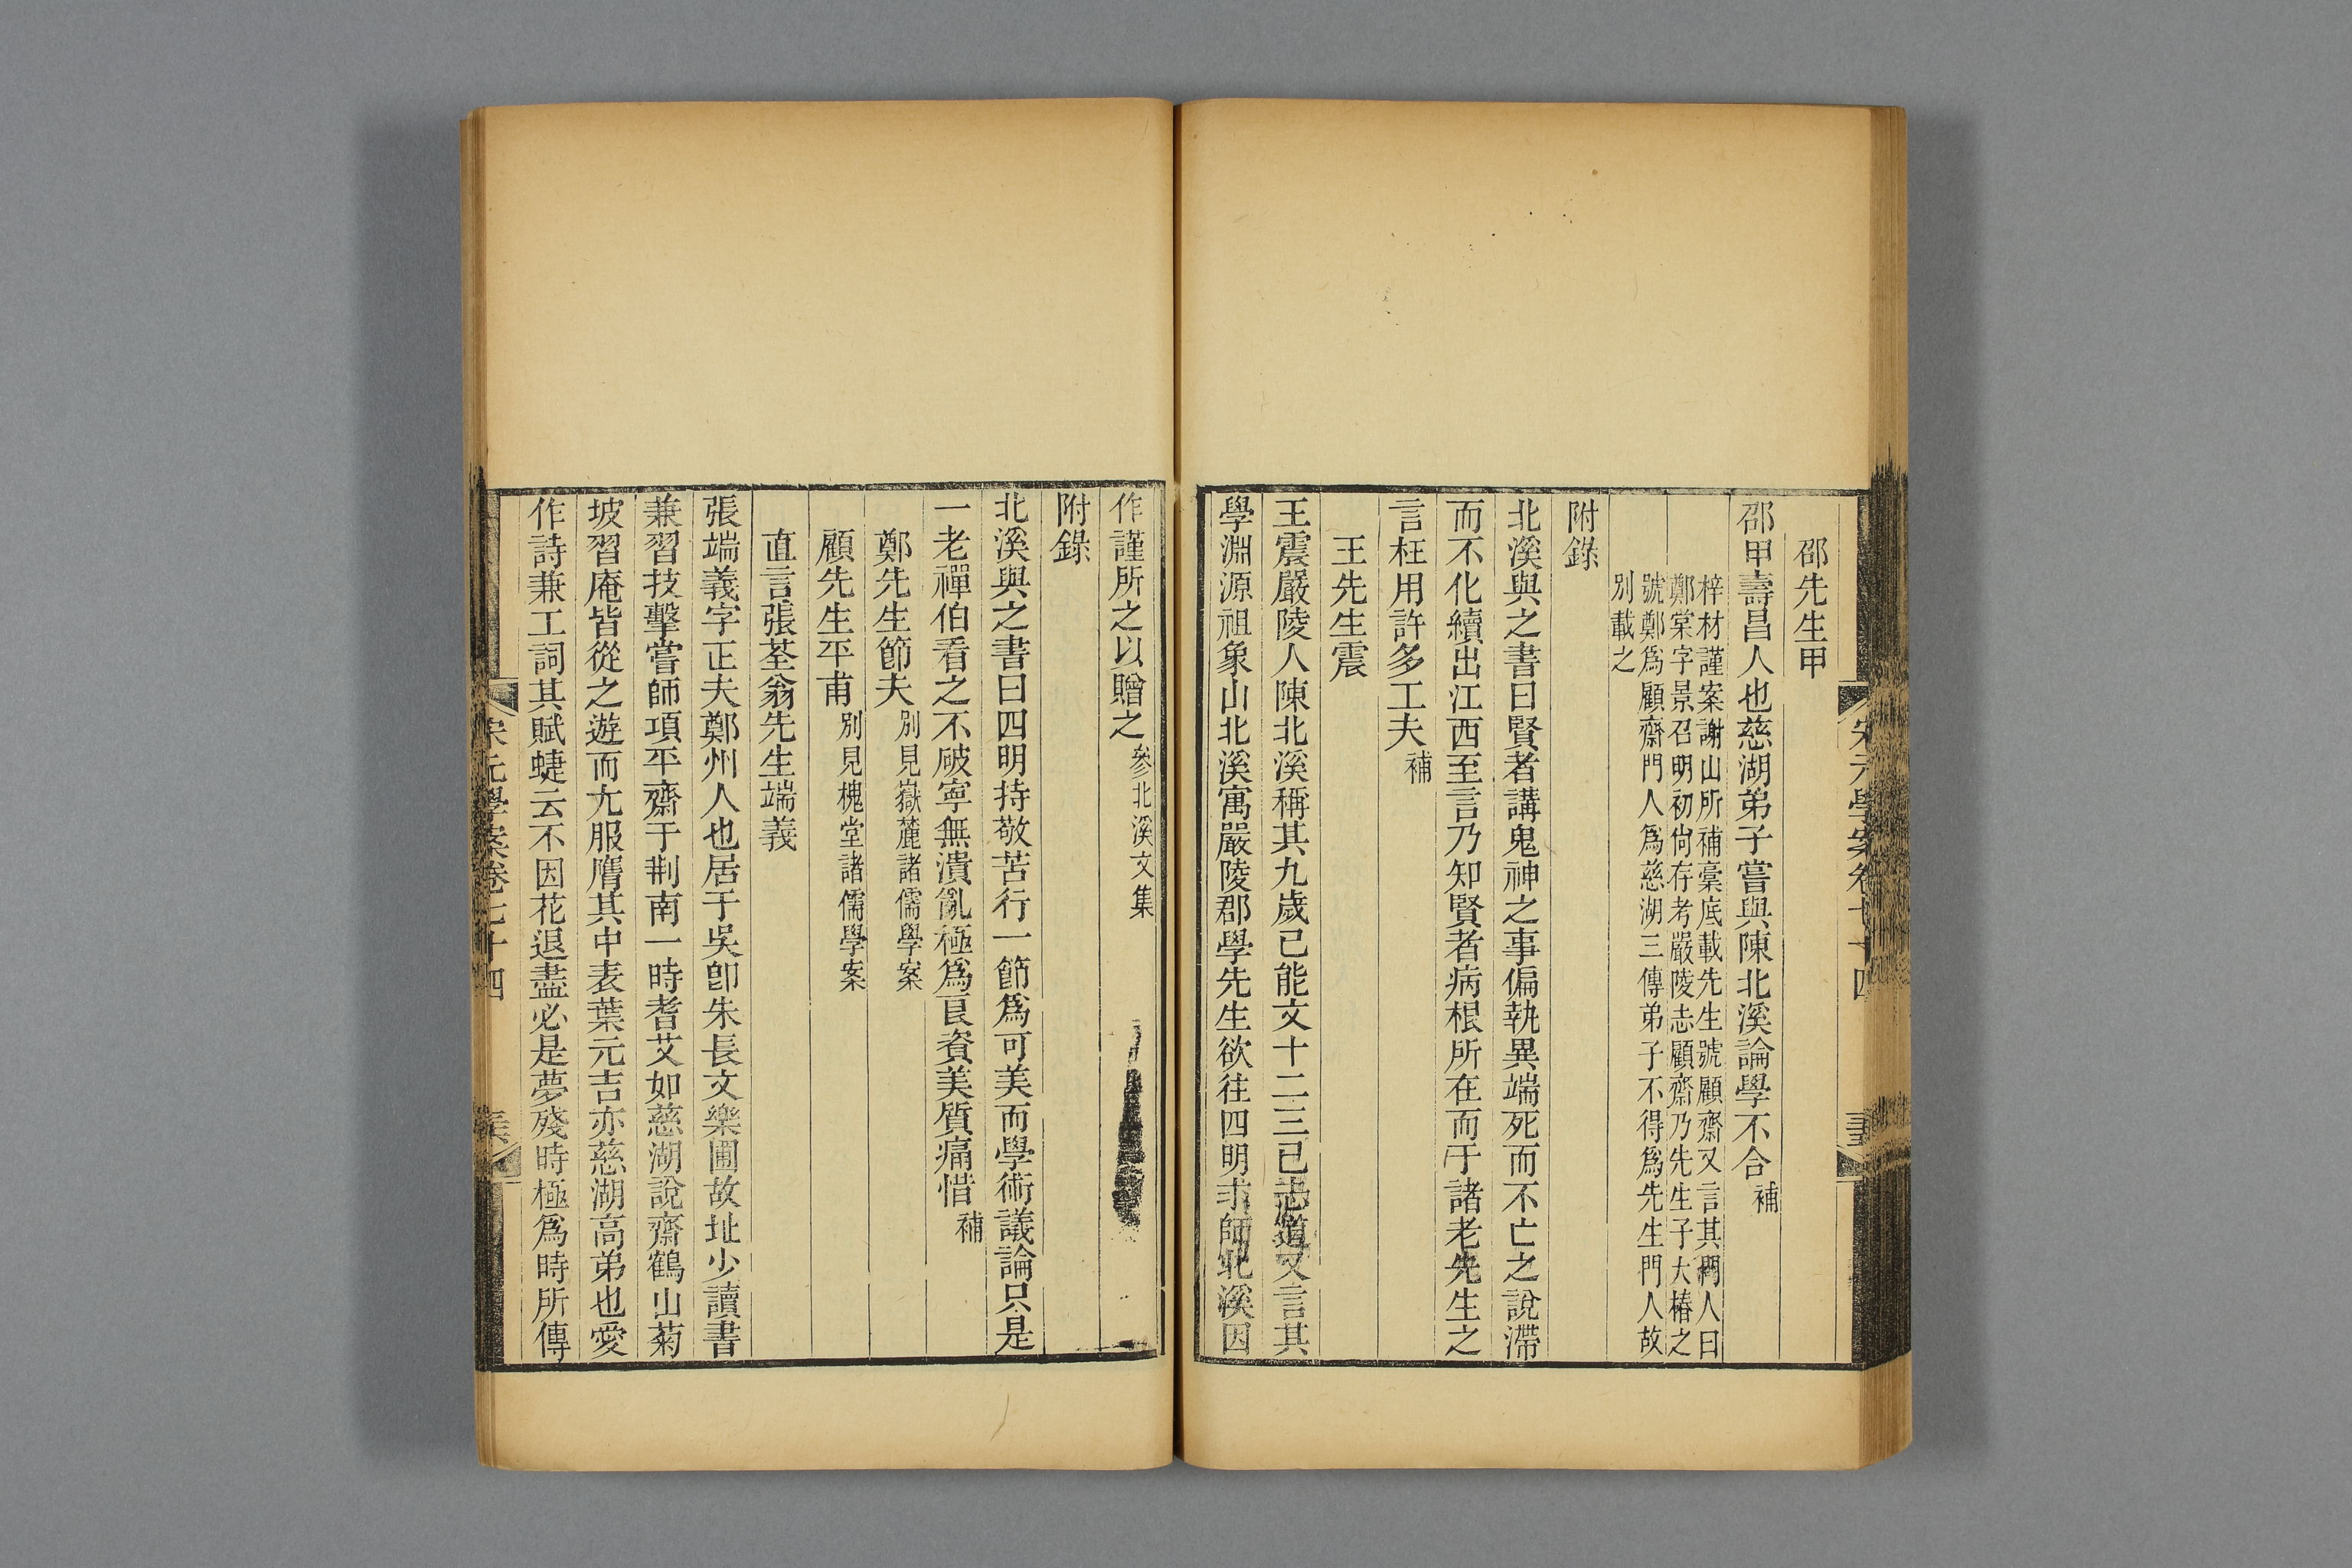 邵先生甲
邵甲壽昌人也慈湖弟子嘗與陳北溪論學不合補
梓材謹案謝山所補稾底載先生號顧齋又言其門人曰
鄭棠字景召明初尙存考嚴陵志顧齋乃先生子大椿之
號鄭爲顧齋門人爲慈湖三傳弟子不得爲先生門人故
別載之
附錄
北溪與之書曰賢者講鬼神之事偏執異端死而不亡之說滯
而不化續出江西至言乃知賢者病根所在而于諸老先生之
言枉用許多工夫補
王先生震
王震嚴陵人陳北溪稱其九歲已能文十二三已志道又言其
學淵源祖象山北溪寓嚴陵郡學先生欲往四明求師北溪因
作謹所之以贈之參北溪文集
附錄
北溪與之書曰四明持敬苦行一節爲可美而學術議論只是
一老禪伯看之不破寧無潰亂極爲良資美質痛惜補
鄭先生節夫別見嶽麓諸儒學案
顧先生平甫別見槐堂諸儒學案
直言張荃翁先生端義
張端義字正夫鄭州人也居于吳卽朱長文樂圃故址少讀書
兼習技擊嘗師項平齋于荆南一時耆艾如慈湖說齋鶴山菊
坡習庵皆從之遊而尢服膺其中表葉元吉亦慈湖高弟也愛
作詩兼工詞其賦蜨云不因花退盡必是夢殘時極爲時所傳
宋元學案卷七十四